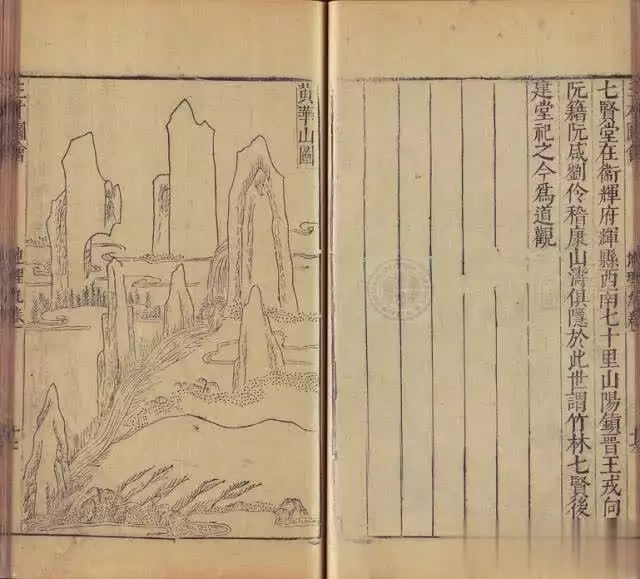 七賢堂在衛輝府輝縣西南七十里山陽鎮晉王戎向
阮籍阮咸劉伶嵇康山濤俱隱於此世謂竹林七賢後
建堂祀之今為道觀
黃華山圖
三才圖會
地理九卷